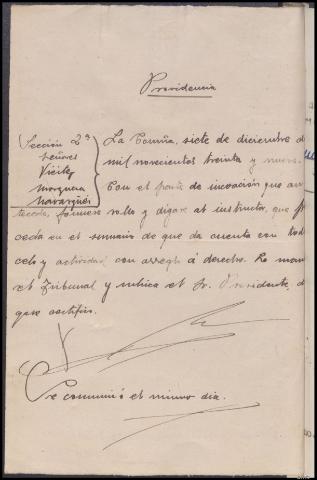 Providencia
Sección 2ª
señores
Vicite
Mosquera
Navarques
La Coruña, siete de diciembre d
mil novecientos treinta y nueve.
Con el parte de incoación que an
tecede, fórmese rollo y dígase al instructor, que p
ceda en el sumario de que da cuenta con tod
celo y actividad, con arreglo á derecho. Lo man
el Tribunal y rubrica el Sr. Presidente, d
que certifico.
Se comunicó el mismo dia.